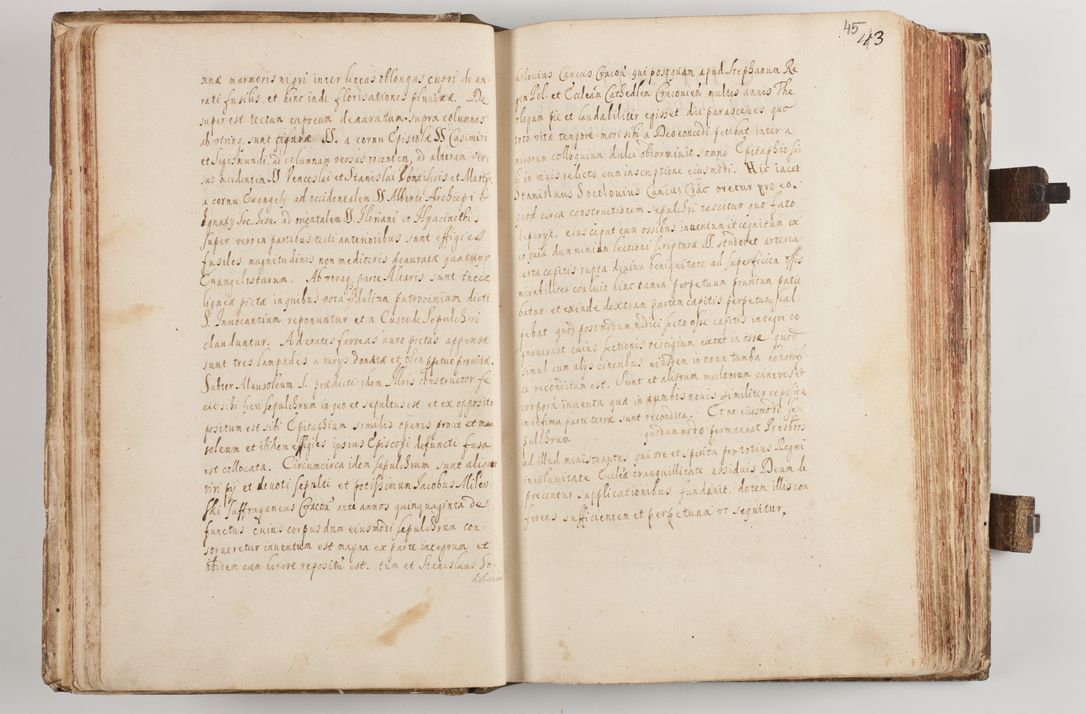 nnæ marmoris nigri inter lineas oblongas cupri deau
rati fusilis, et hinc inde florisationes plurimæ. De
super est tectum cupreum deauratum, supra columnas
ab utrinq, sunt signaræ SS. a cornu Epistolæ SS Casimiri
et Sigismundi, ad columnam versus orientem, ad alteram ver
sus occidentem SS Venceslai et Stanislai Pontificis et Martyr.
a cornu Euangely ad occidentalem SS Alberti Archiepi &
Ignaty Soc. Iesu. ad orientalem SS. Floriani et Hyacinthi.
Super vero in partibus tecti anterioribus, sunt effigies
fusiles magnitudinis non mediocris deauratæ quatuor
Euangelistarum. Ab utraq, parte Altaris sunt thecæ
ligneæ pictæ in quibus vota fidelium patrocinium dicti
S. Inuocantium reponuntur et a Custode Sepulchri
clauduntur. Ad crates ferreas auro pictas appensæ
sunt tres lampades a varys donatæ et oleo
Subter Mausoleum S. prædicti idem Illris constructor fe
cit sibi fieri sepulchrum in quo et sepultus est. et ex opposito
positum est sibi Epitaphium similis operis prout et mau
soleum et ibidem effigies ipsius Episcopi defuncti fusa
est collocata. Circumcirca idem sepulchrum sunt aliquot
viri py et deuoti sepulti et potissimum Iacobus Milew
ski Suffraganeus Cracou ante annos quinquaginta de
functus cuius corpus dum eiusmodi sepulchrum con
strueretur inuentum est magna ex parte integrum et
ibidem cum honore repositu est. tum et Stanislaus So
kolouius
45
43
kolouius Cancus Cracou qui postquam apud Stephanum Re
gem Pol. et Eccleam Cathedlem Cracouien multis annis The
ologum pie et laudabiliter egisset die parasceues quo
toto vitæ tempore mori sibi a Deo concedi petebat inter a
micorum colloquium dulci obdormiuit somno Epitaphio si
bi in muis relicto cum inscriptione eiusmodi. Hic iacet
Stanislaus Socolouius Cancus Crac oretur pro eo.
quod circa constructionem sepulchri nescitur quo fato
deperyt. eius caput cum ossibus inuentum et cognitum ex
eo quia dum nimium lectioni scripturæ SS. studeret arteria
certa capitis rupta diuina benignitate ad superficiem ossis
mirabiliter coaluit hinc tamen perpetuum pruritum patie
batur et exinde dextram partem capitis perpetuo scal
pebat quod postmodum medici secto osse capitis integre co
gnouerunt cuius sectionis vestigium extat in osse quod
simul cum alys cineribus eiusdem in noua tumba honorifi
ce reconditum est. Sunt et aliorum multorum cineres &
corpora inuenta quæ in tumbis nouis similiter reposita
in infima parte terræ sunt recondita. Et ne eiusmodi se
pulchrum quodammodo fermaneat Presbros
ad illud ministrantes qui ore et spiritu pro totius Regni
incolumitate Ecclæ tranquillitate assiduis Deum de
precentur supplicationibus fundauit, dotem illis con
ferens sufficientem et perpetuam ut sequitur.